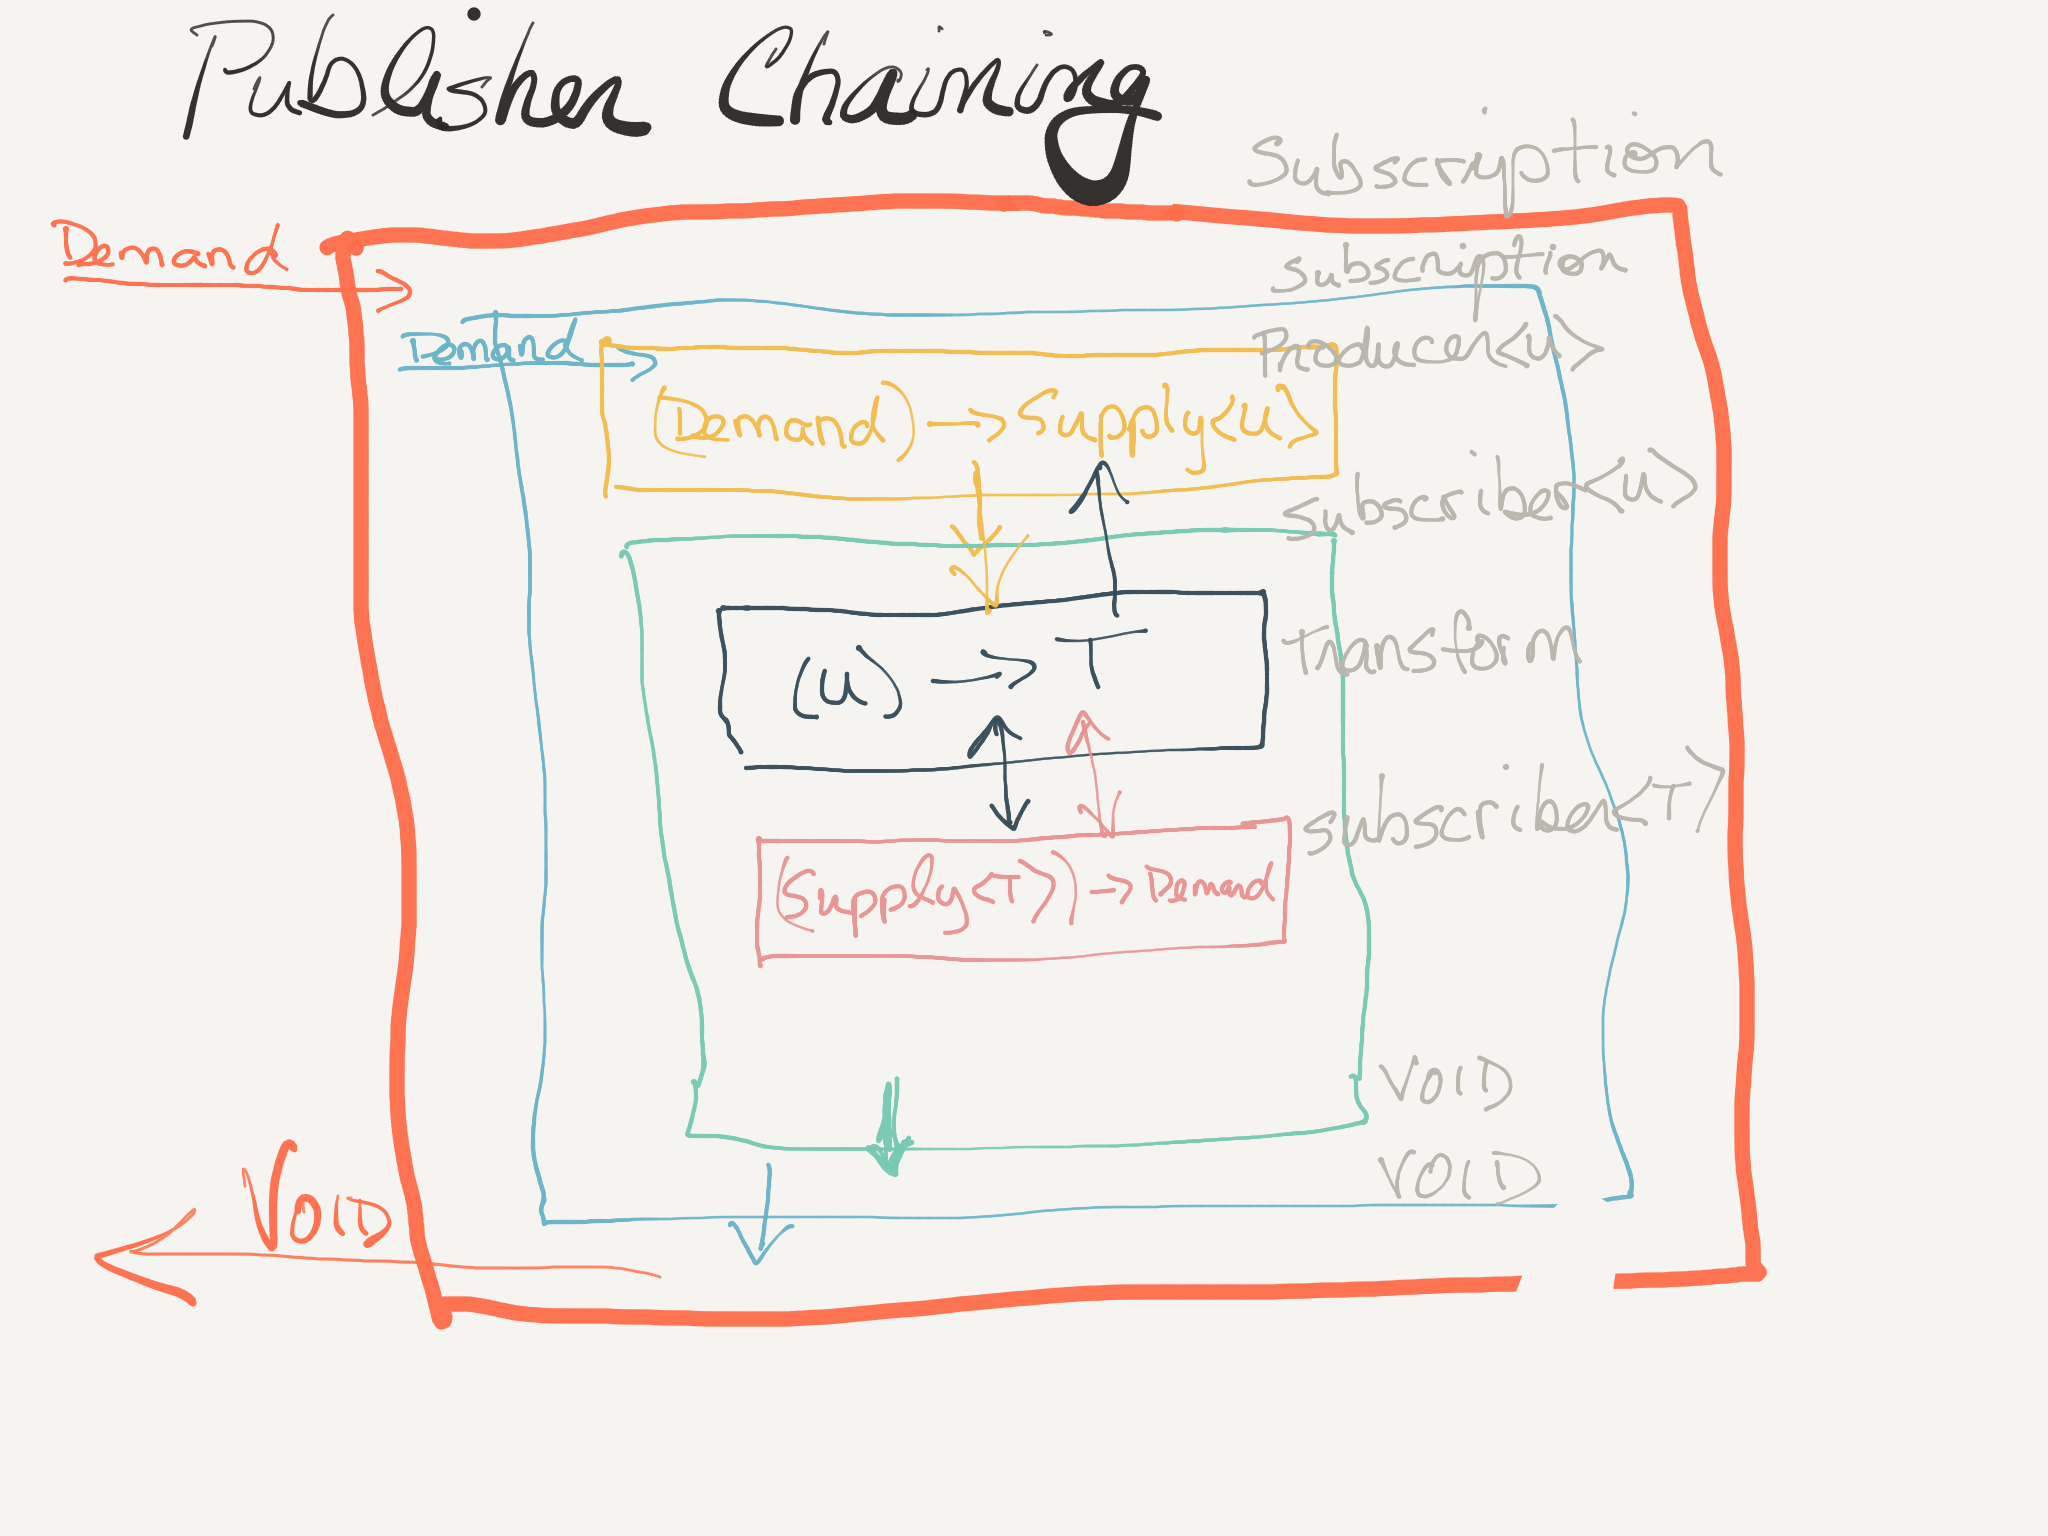 Publisher Chaining
Subscription
Demand
subscription
Demand
Producer<u>
(Demand) → Supply<u>
subscriber<u>
(u) → T
Transform
subscriber<T>
(Supply<T>) → Demand
VOID
VOID
VOID